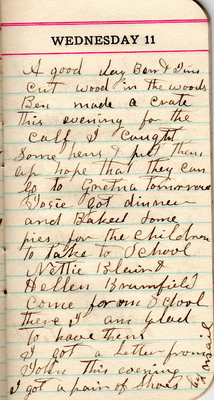 WEDNESDAY 11
A good day Ben & Jim
cut wood in the woods
Ben made a crate
this evening for the
calf I caught
some hens & put them
up hope that they can
go to Gretna tomorrow
Josie got dinner
and Baked some
pies for the children
to take to School
Nettie Blair &
Hellen Bramfield
Come from School
there I am glad
to have them
I got a Letter from
John this evening
I got a pair of Shoes by mail